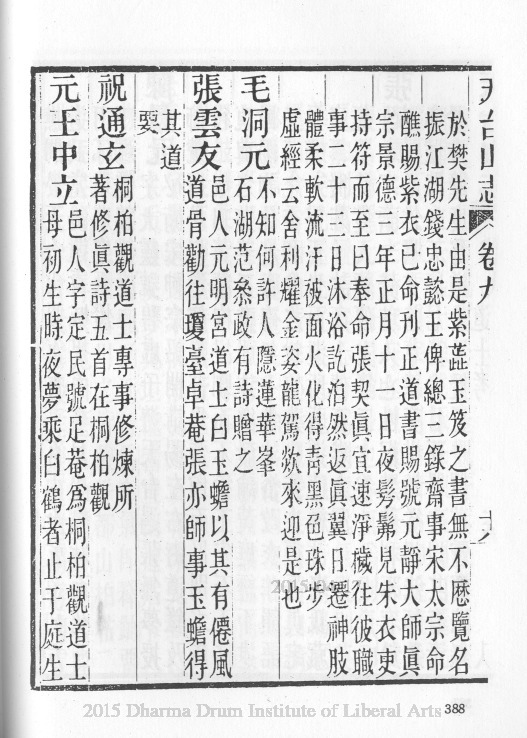 天台山志 卷九 十八
於樊先生由是紫蘂玉笈之書無不歷覽名
振江湖錢忠懿王俾總三錄齋事宋太宗命
醮賜紫衣已命刊正道書賜號元靜大師眞
宗景德三年正月十一日夜髣髴見朱衣吏
持符而至曰奉命張契眞宜速淨穢往彼職
事二十三日沐浴訖泊然返眞翼日遷神肢
體柔軟流汗被面火化得靑黑色珠步
虛經云舍利耀金姿龍駕欻來迎是也
毛洞元 不知何許人隱蓮華峯
石湖范叅政有詩贈之
張雲友 邑人元明宮道士白玉蟾以其有僊風
道骨勸往瓊臺卓菴張亦師事玉蟾得
其道
要
祝通玄 桐柏觀道士專事修煉所
著修眞詩五首在桐柏觀
元王中立 邑人字定民號足菴爲桐柏觀道士
母初生時夜夢乘白鶴者止于庭生
2015
388
2015 Dharma Drum Institute of Liberal Arts